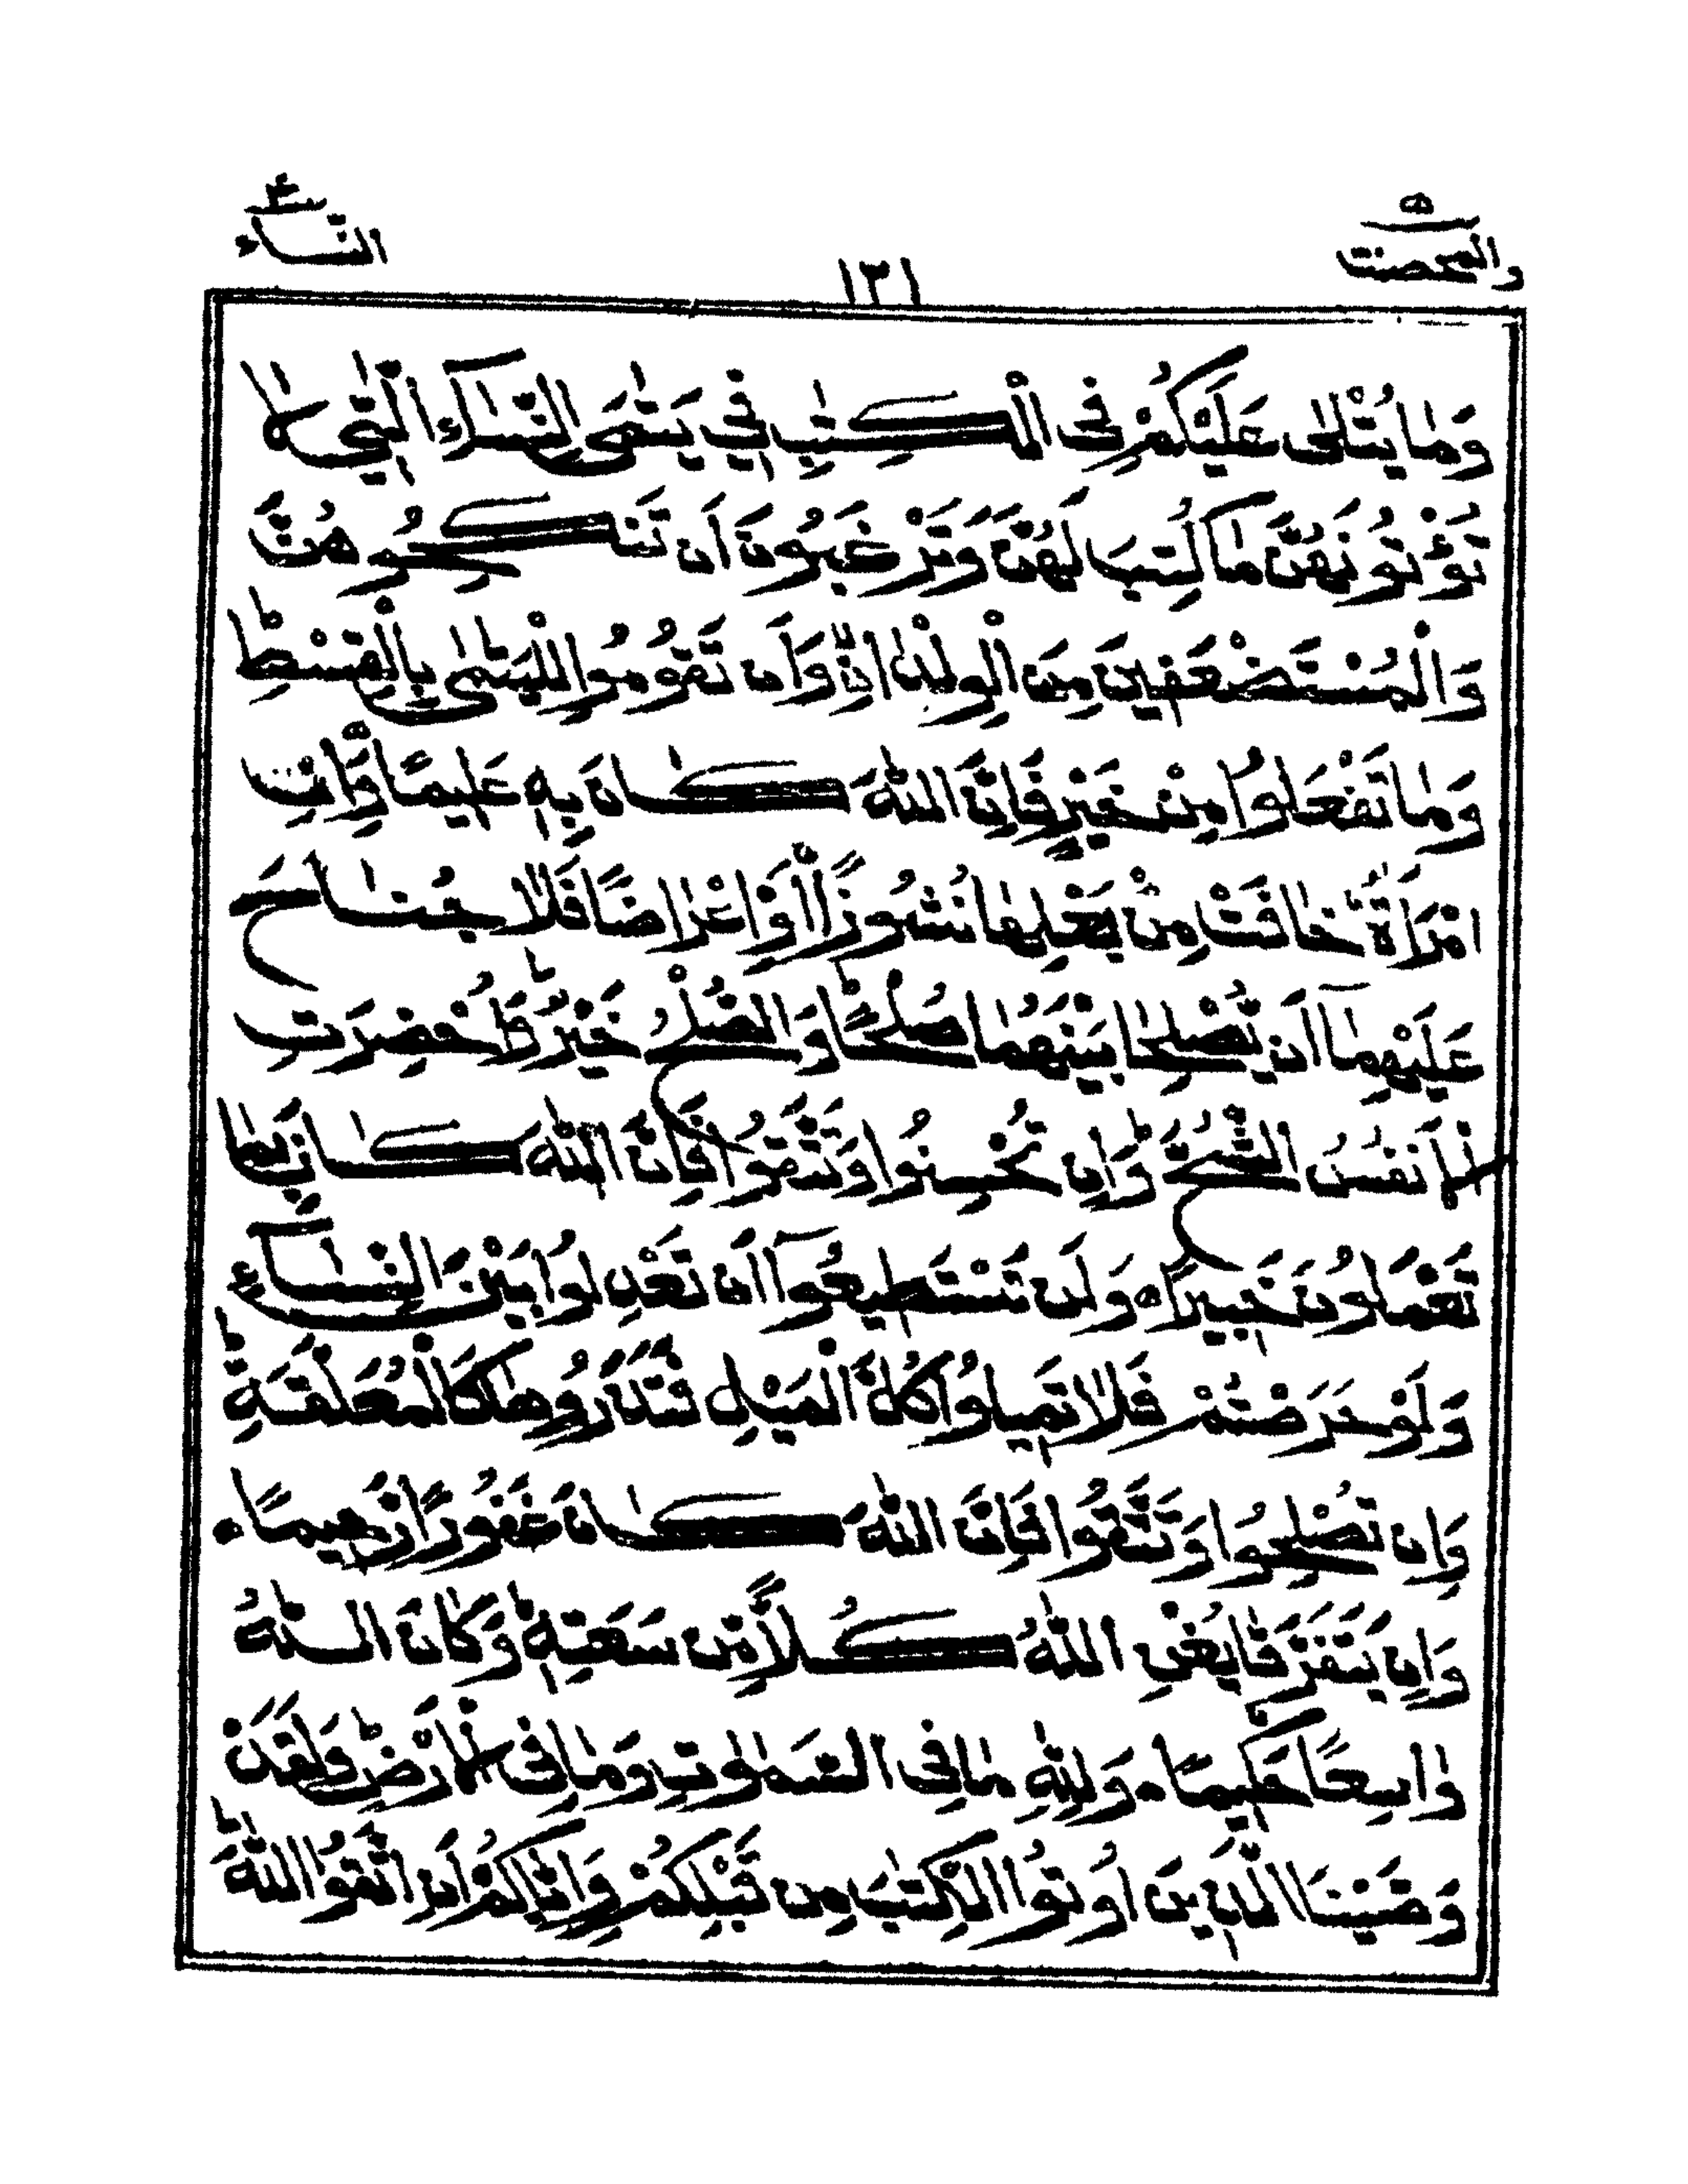 والمحصنت ۵
١٣١
النساء ۴
وَمَا يُتْلٰى عَلَيْكُمْ فِى الْكِتٰبِ فِيْ يَتٰمَى النِّسَآءِ الّٰتِيْ لَا
تُؤْتُوْنَهُنَّ مَا كُتِبَ لَهُنَّ وَتَرْغَبُوْنَ اَن تَنْكِحُوْهُنَّ
وَالْمُسْتَضْعَفِيْنَ مِنَ الْوِلْدَانِ وَاَن تَقُوْمُوْا لِلْيَتٰمٰى بِالْقِسْطِ
وَمَا تَفْعَلُوْا مِنْ خَيْرٍ فَاِنَّ اللّٰهَ كَانَ بِهٖ عَلِيْمًا وَّاِنِ
امْرَاَةٌ خَافَتْ مِنْ بَعْلِهَا نُشُوْزًا اَوْ اِعْرَاضًا فَلَا جُنَاحَ
عَلَيْهِمَآ اَن يُّصْلِحَا بَيْنَهُمَا صُلْحًا وَالصُّلْحُ خَيْرٌ وَاُحْضِرَتِ
الْاَنفُسُ الشُّحَّ وَاِن تُحْسِنُوْا وَتَتَّقُوْا فَاِنَّ اللّٰهَ كَانَ بِمَا
تَعْمَلُوْنَ خَبِيْرًا ه وَلَن تَسْتَطِيْعُوْآ اَن تَعْدِلُوْا بَيْنَ النِّسَآءِ
وَلَوْ حَرَصْتُمْ فَلَا تَمِيْلُوْا كُلَّ الْمَيْلِ فَتَذَرُوْهَا كَالْمُعَلَّقَةِ
وَاِن تُصْلِحُوْا وَتَتَّقُوْا فَاِنَّ اللّٰهَ كَانَ غَفُوْرًا رَّحِيْمًا ه
وَاِن يَّتَفَرَّقَا يُغْنِ اللّٰهُ كُلًّا مِّن سَعَتِهٖ وَكَانَ اللّٰهُ
وَاسِعًا حَكِيْمًا ه وَلِلّٰهِ مَا فِى السَّمٰوٰتِ وَمَا فِى الْاَرْضِ وَلَقَدْ
وَصَّيْنَا الَّذِيْنَ اُوْتُوا الْكِتٰبَ مِن قَبْلِكُمْ وَاِيَّاكُمْ اَنِ اتَّقُوا اللّٰهَ